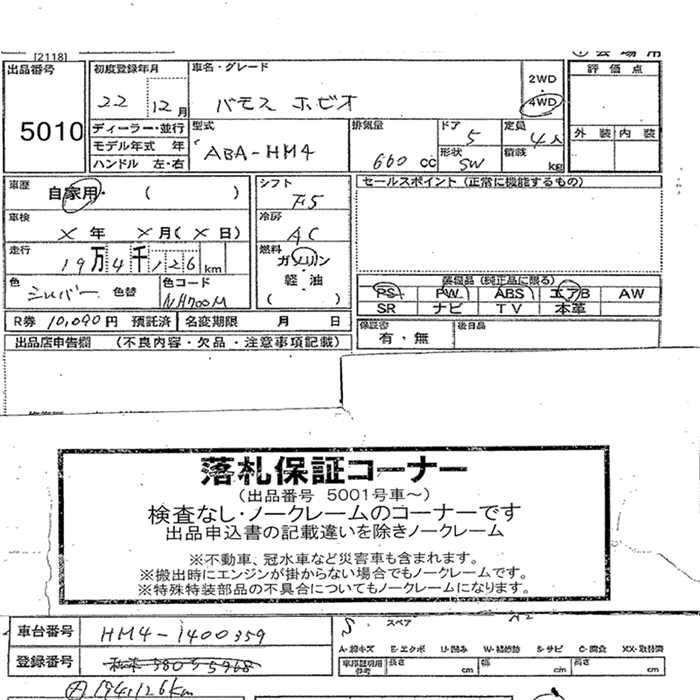 [2118]
出品番号
5010
初度登録年月
22 12月
ディーラー・並行
モデル年式 年
ハンドル 左・右
車名・グレード
バモス ホビオ
2WD
4WD
型式
ABA-HM4
排気量
660 cc
ドア
5
形状
SW
定員
4人
積載
kg
評価点
外装 内装
車歴
自家用・( )
車検
× 年 × 月(× 日)
走行
19万4千126km
色
シルバー 色替
色コード
NH700M
シフト
F5
冷房
AC
燃料
ガソリン
軽・油
( ・ )
セールスポイント (正常に機能するもの)
装備品 (純正品に限る)
PS PW ABS エアB AW
SR ナビ TV 本革
R券 10,090円 預託済
名変期限 月 日
保証書
有・無
後日品
出品店申告欄 (不良内容・欠品・注意事項記載)
落札保証コーナー
(出品番号 5001号車～)
検査なし・ノークレームのコーナーです
出品申込書の記載違いを除きノークレーム
※不動車、冠水車など災害車も含まれます。
※搬出時にエンジンが掛からない場合でもノークレームです。
※特殊特装部品の不具合についてもノークレームになります。
車台番号
HM4-1400359
登録番号
スペア
A-線キズ E-エクボ U-凹み W-補修跡 S-サビ C-腐食 XX-取替済
車庫証明用
参考
長さ cm
幅 cm
高さ cm
194126km